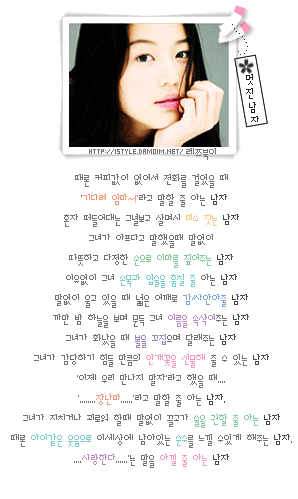 멋진남자
HTTP://ISTYLE.DAMOIM.NET/ 레쯔북이
때론 커피값이 없어서 전화를 걸었을 때
'기다려 임마~'라고 말할 줄 아는 남자
혼자 떠들어대는 그녈보고 살며시 미소 짓는 남자
그녀가 아프다고 말했을때 말없이
따뜻하고 다정한 손으로 이마를 짚어주는 남자
이유없이 그녀 손목과 입술을 훔칠 줄 아는 남자
말없이 울고 있을 때 넓은 어깨로 감싸안아줄 남자
까만 밤 하늘을 보며 문득 그녀 이름을 속삭여주는 남자
그녀가 화났을 때 볼을 꼬집으며 달래주는 남자
그녀가 감당하기 힘들 만큼의 안개꽃을 선물해 줄 수 있는 남자
'이제 우리 만나지 말자'라고 했을 때....
'.......장난마......'라고 말할 줄 아는 남자,
그녀가 지치거나 괴로워 할때 말없이 끌고가 술을 권할 줄 아는 남자
때론 아이같은 웃음으로 이세상에 남아있는 순수를 느낄 수있게 해주는 남자,
....사랑한다......'는 말을 아낄 줄 아는 남자